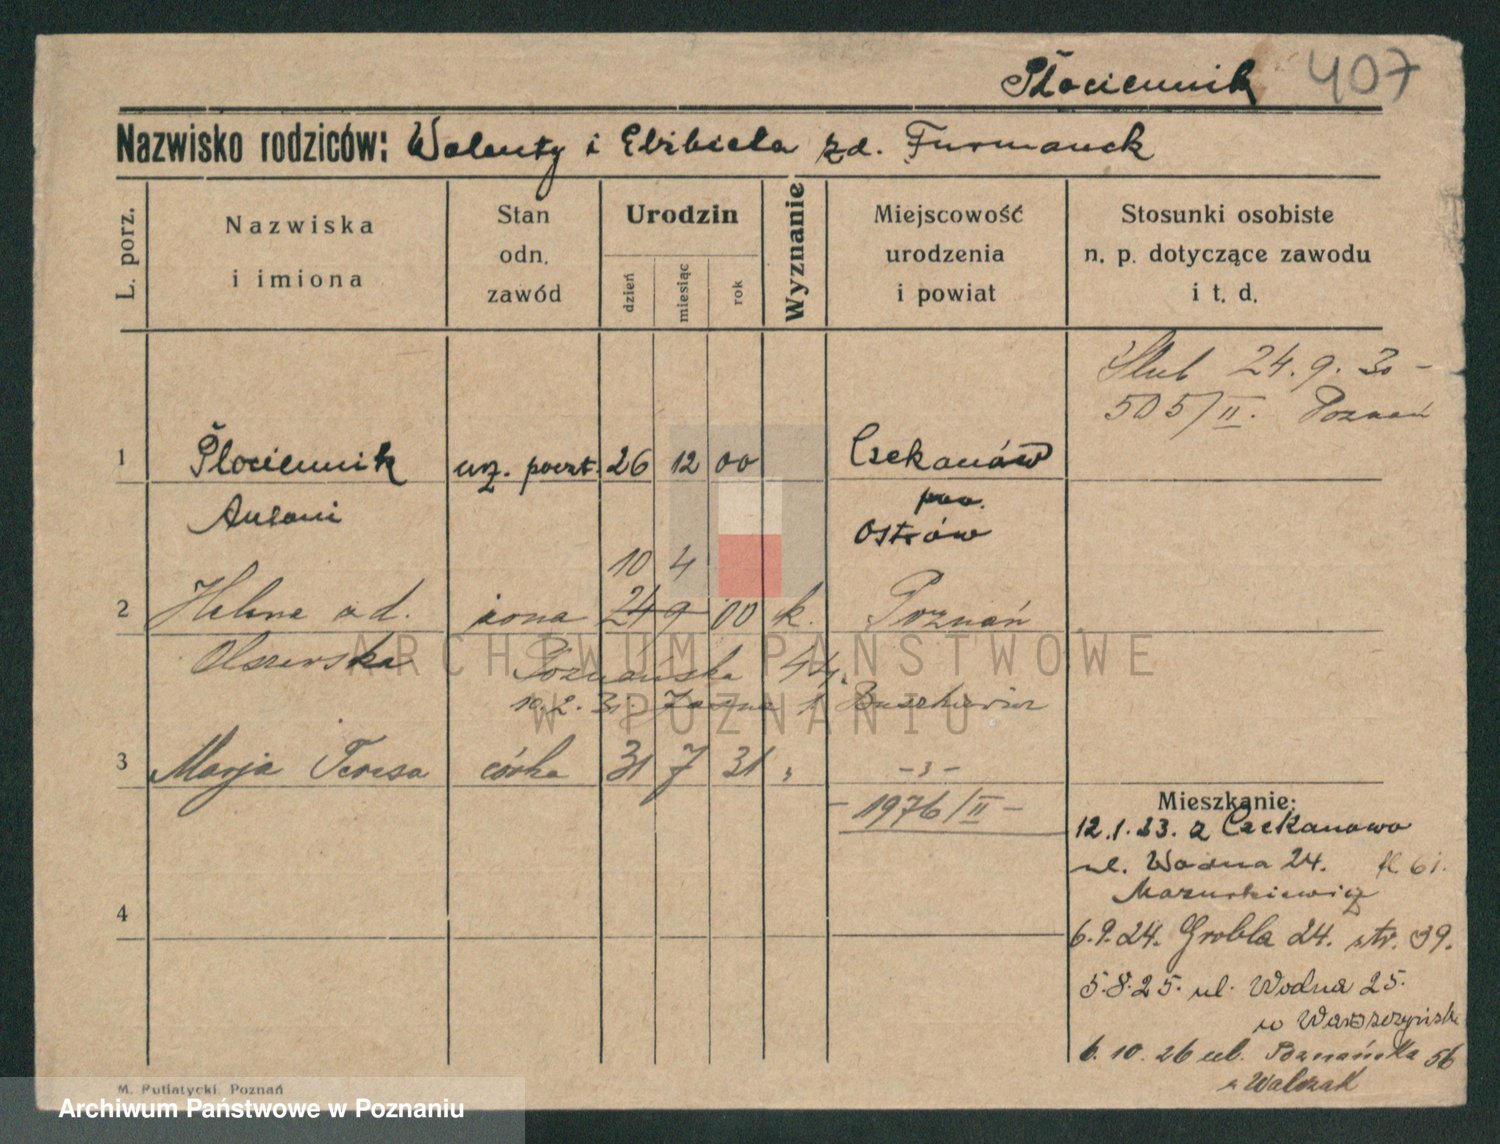 Płociennik 407
Nazwisko rodziców: Walenty i Elżbieta zd. Furmanek
L. porz.
Nazwiska
i imiona
Stan
odn.
zawód
Urodzin
dzień
miesiąc
rok
Wyznanie
Miejscowość
urodzenia
i powiat
Stosunki osobiste
n. p. dotyczące zawodu
i t. d.
Ślub 24.9.30 -
505/II. Poznań
1 Płociennik urz. poczt. 26 12 00 Czekanów
Antoni pow.
Ostrów
10 4
2 Helena od. żona 24 9 00 k. Poznań
Olszewska
Poznańska 44.
10.2.31. Jasna 1
3 Marja Teresa córka 31 7 31 „ -„-
- 1976/II -
Mieszkanie:
12.1.23. z Czekanowa
ul. Wodna 24.
Mazurkiewicz
4
6.9.24. Grobla 24. str. 39.
5.8.25. ul. Wodna 25.
u
6.10.26 ul. Poznańska 56
Walczak
M. Putiatycki, Poznań
ARCHIWUM PAŃSTWOWE
W POZNANIU
Archiwum Państwowe w Poznaniu